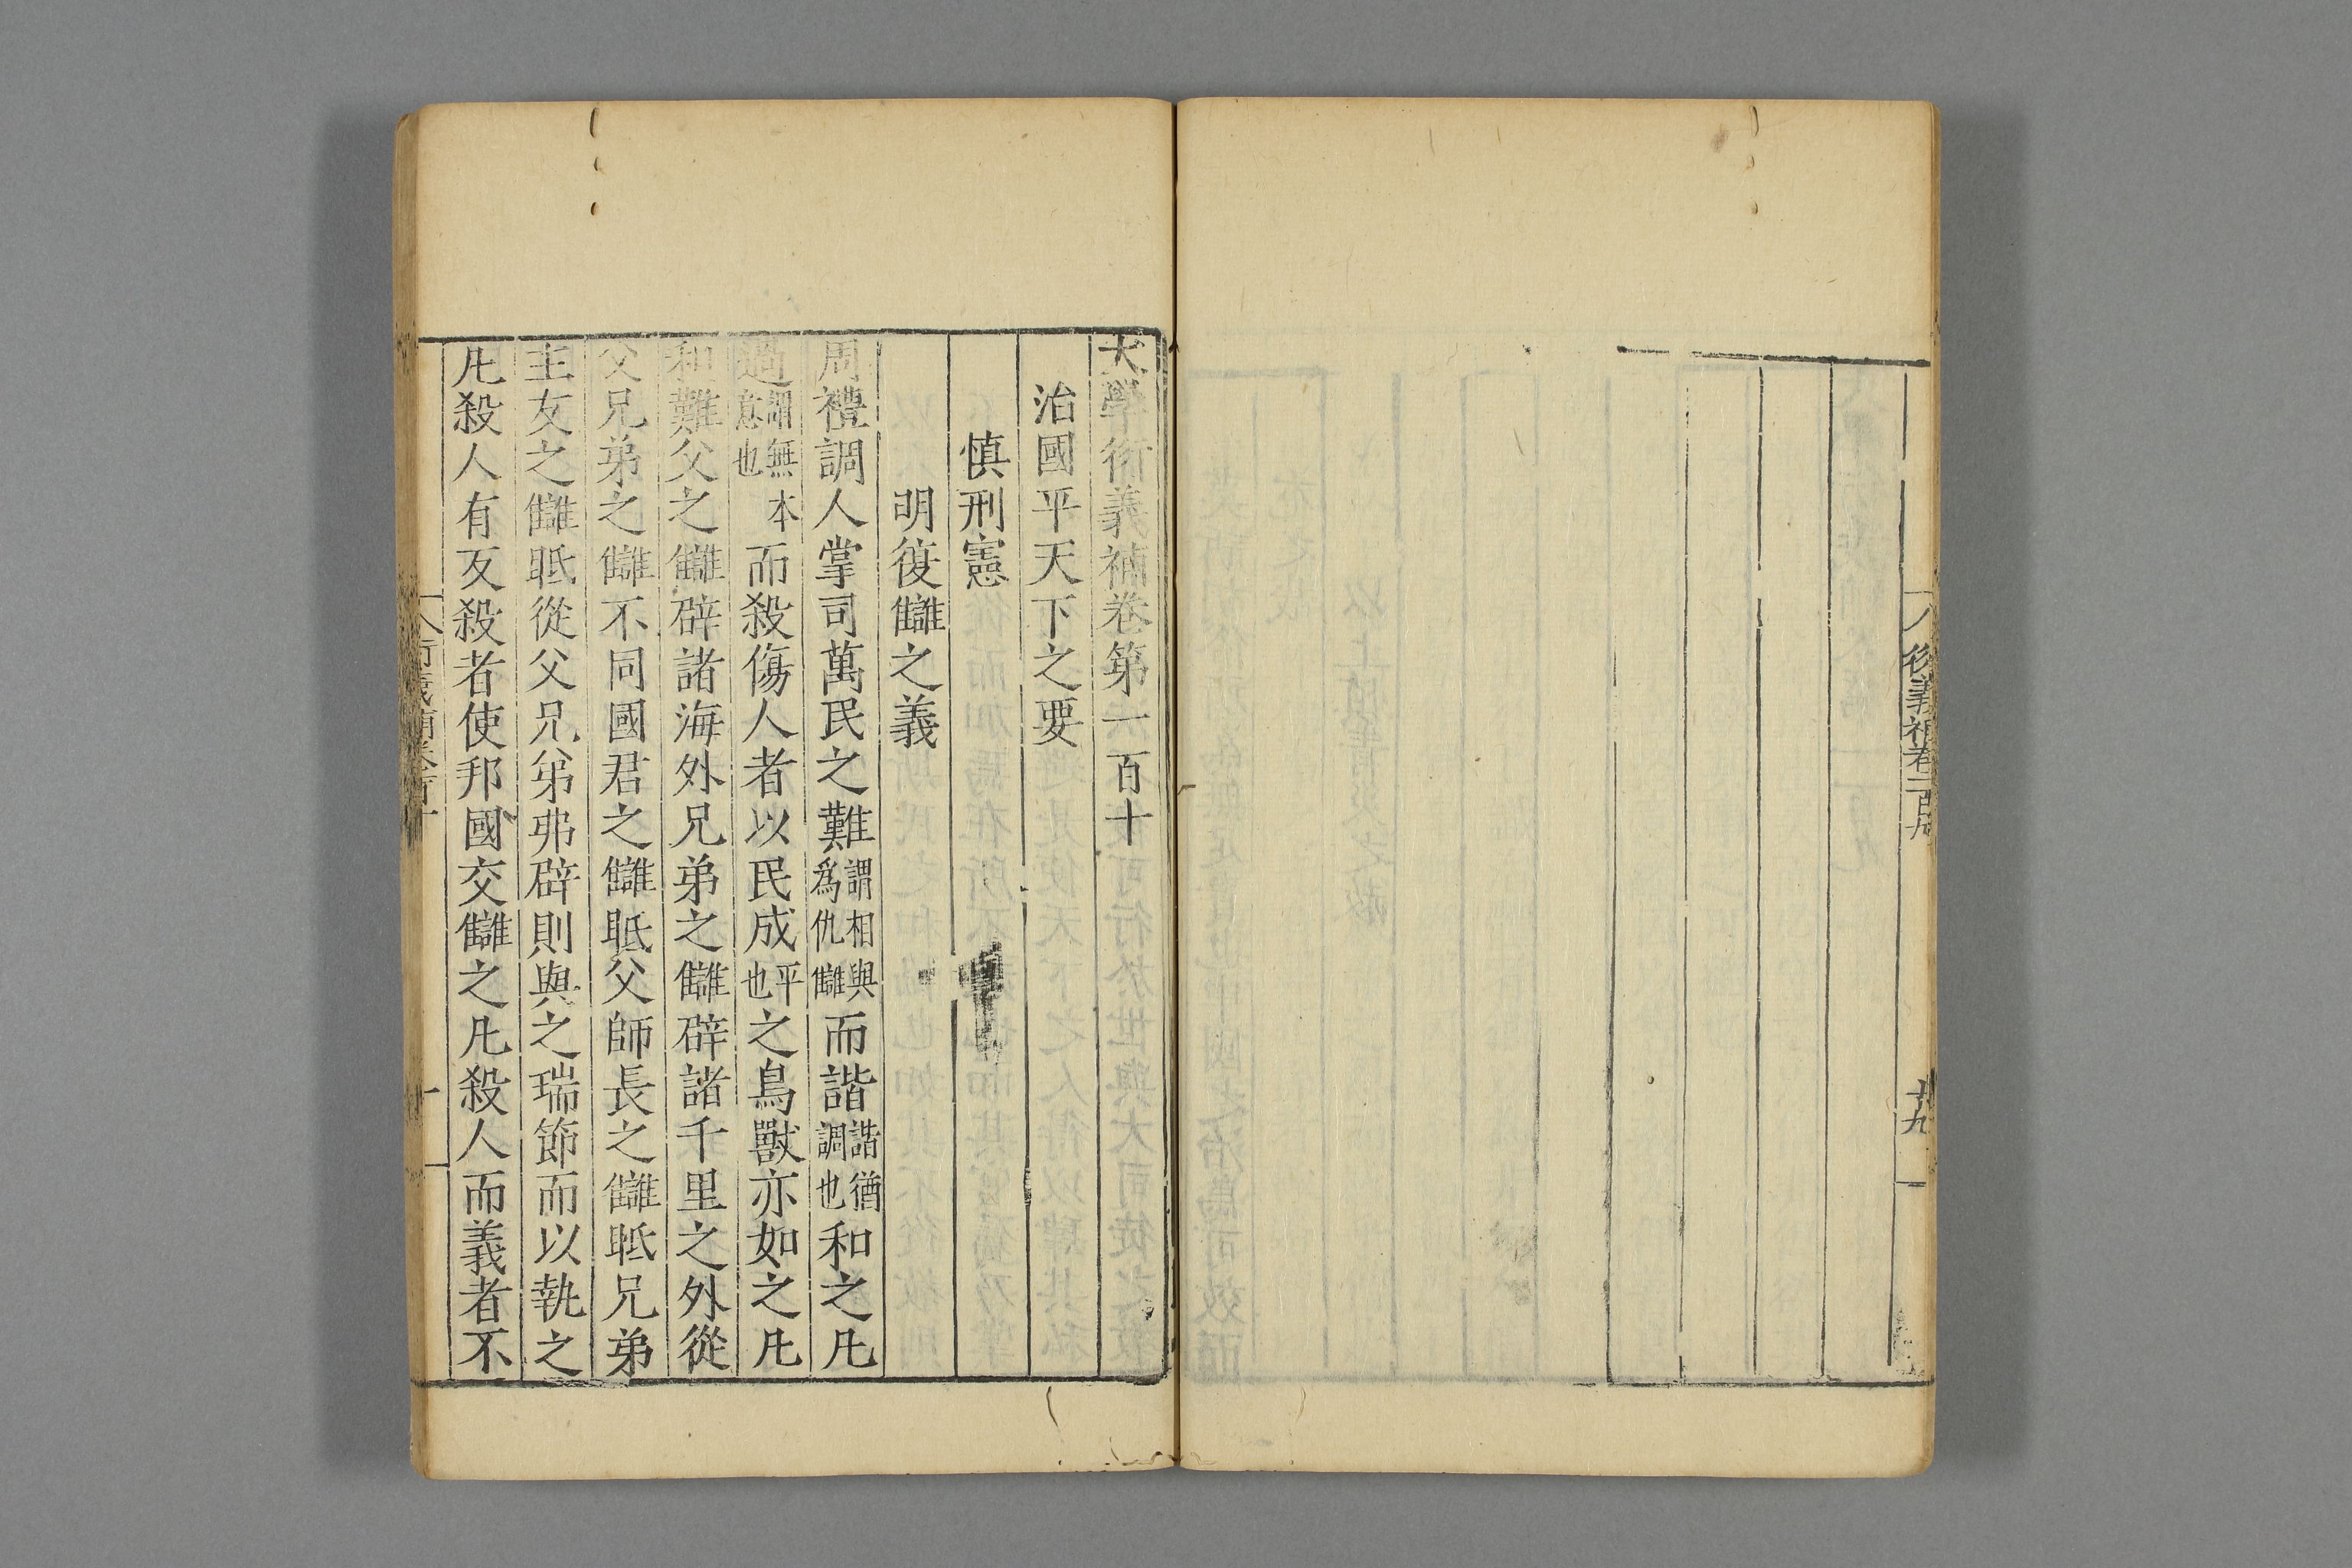 衍義補卷一百九
十九
大學衍義補卷第一百十
治國平天下之要
慎刑憲
明復讎之義
周禮調人掌司萬民之難謂相與爲仇讎而諧諧猶調也和之凡
過謂無本意也而殺傷人者以民成平也之鳥獸亦如之凡
和難父之讎辟諸海外兄弟之讎辟諸千里之外從
父兄弟之讎不同國君之讎眡父師長之讎眡兄弟
主友之讎眡從父兄弟弗辟則與之瑞節而以執之
凡殺人有反殺者使邦國交讎之凡殺人而義者不